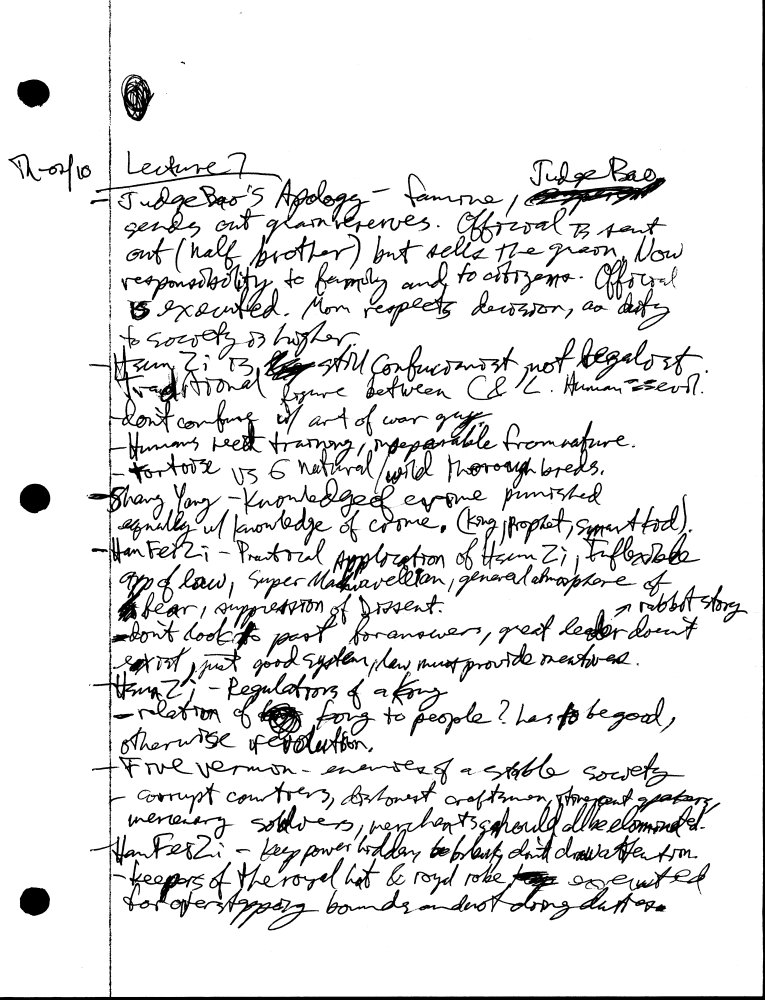 Th-02/10 Lecture 7
- Judge Bao's Apology - famine, Judge Bao
sends out grain reserves. Official is sent
out (half brother) but sells the grain. Now
responsibility to family and to citizens. Official
is executed. Mom respects decision, as duty
to society is higher.
- Hsun Zi is still Confucianist, not legalist.
Traditional figure between C & L. Human = evil.
- don't confuse w/ art of war guy
- Humans need training, inseparable from nature.
- tortoise vs 6 natural/wild thoroughbreds.
- Shang Yang - Knowledge of crime punished
equally w/ knowledge of crime. (King, Prophet, )
- Han Fei Zi - Practical Application of Hsun Zi, Inflexible
app of law, Super Machiavellian, general atmosphere of
fear, suppression of Dissent. → rabbit story
- don't look to past for answers, great leader doesn't
exist, just good system, law must provide
- Hsun Zi - Regulations of a King
- relation of to people? has to be good,
otherwise revolution.
- Five vermin - enemies of a stable society
- corrupt courtiers, dishonest craftsmen, speakers,
mercenary soldiers, merchants should all be eliminated.
- Han Fei Zi - keep power hidden, don't draw attention
- keepers of the royal hat & royal robe executed
for overstepping bounds and not doing duties.